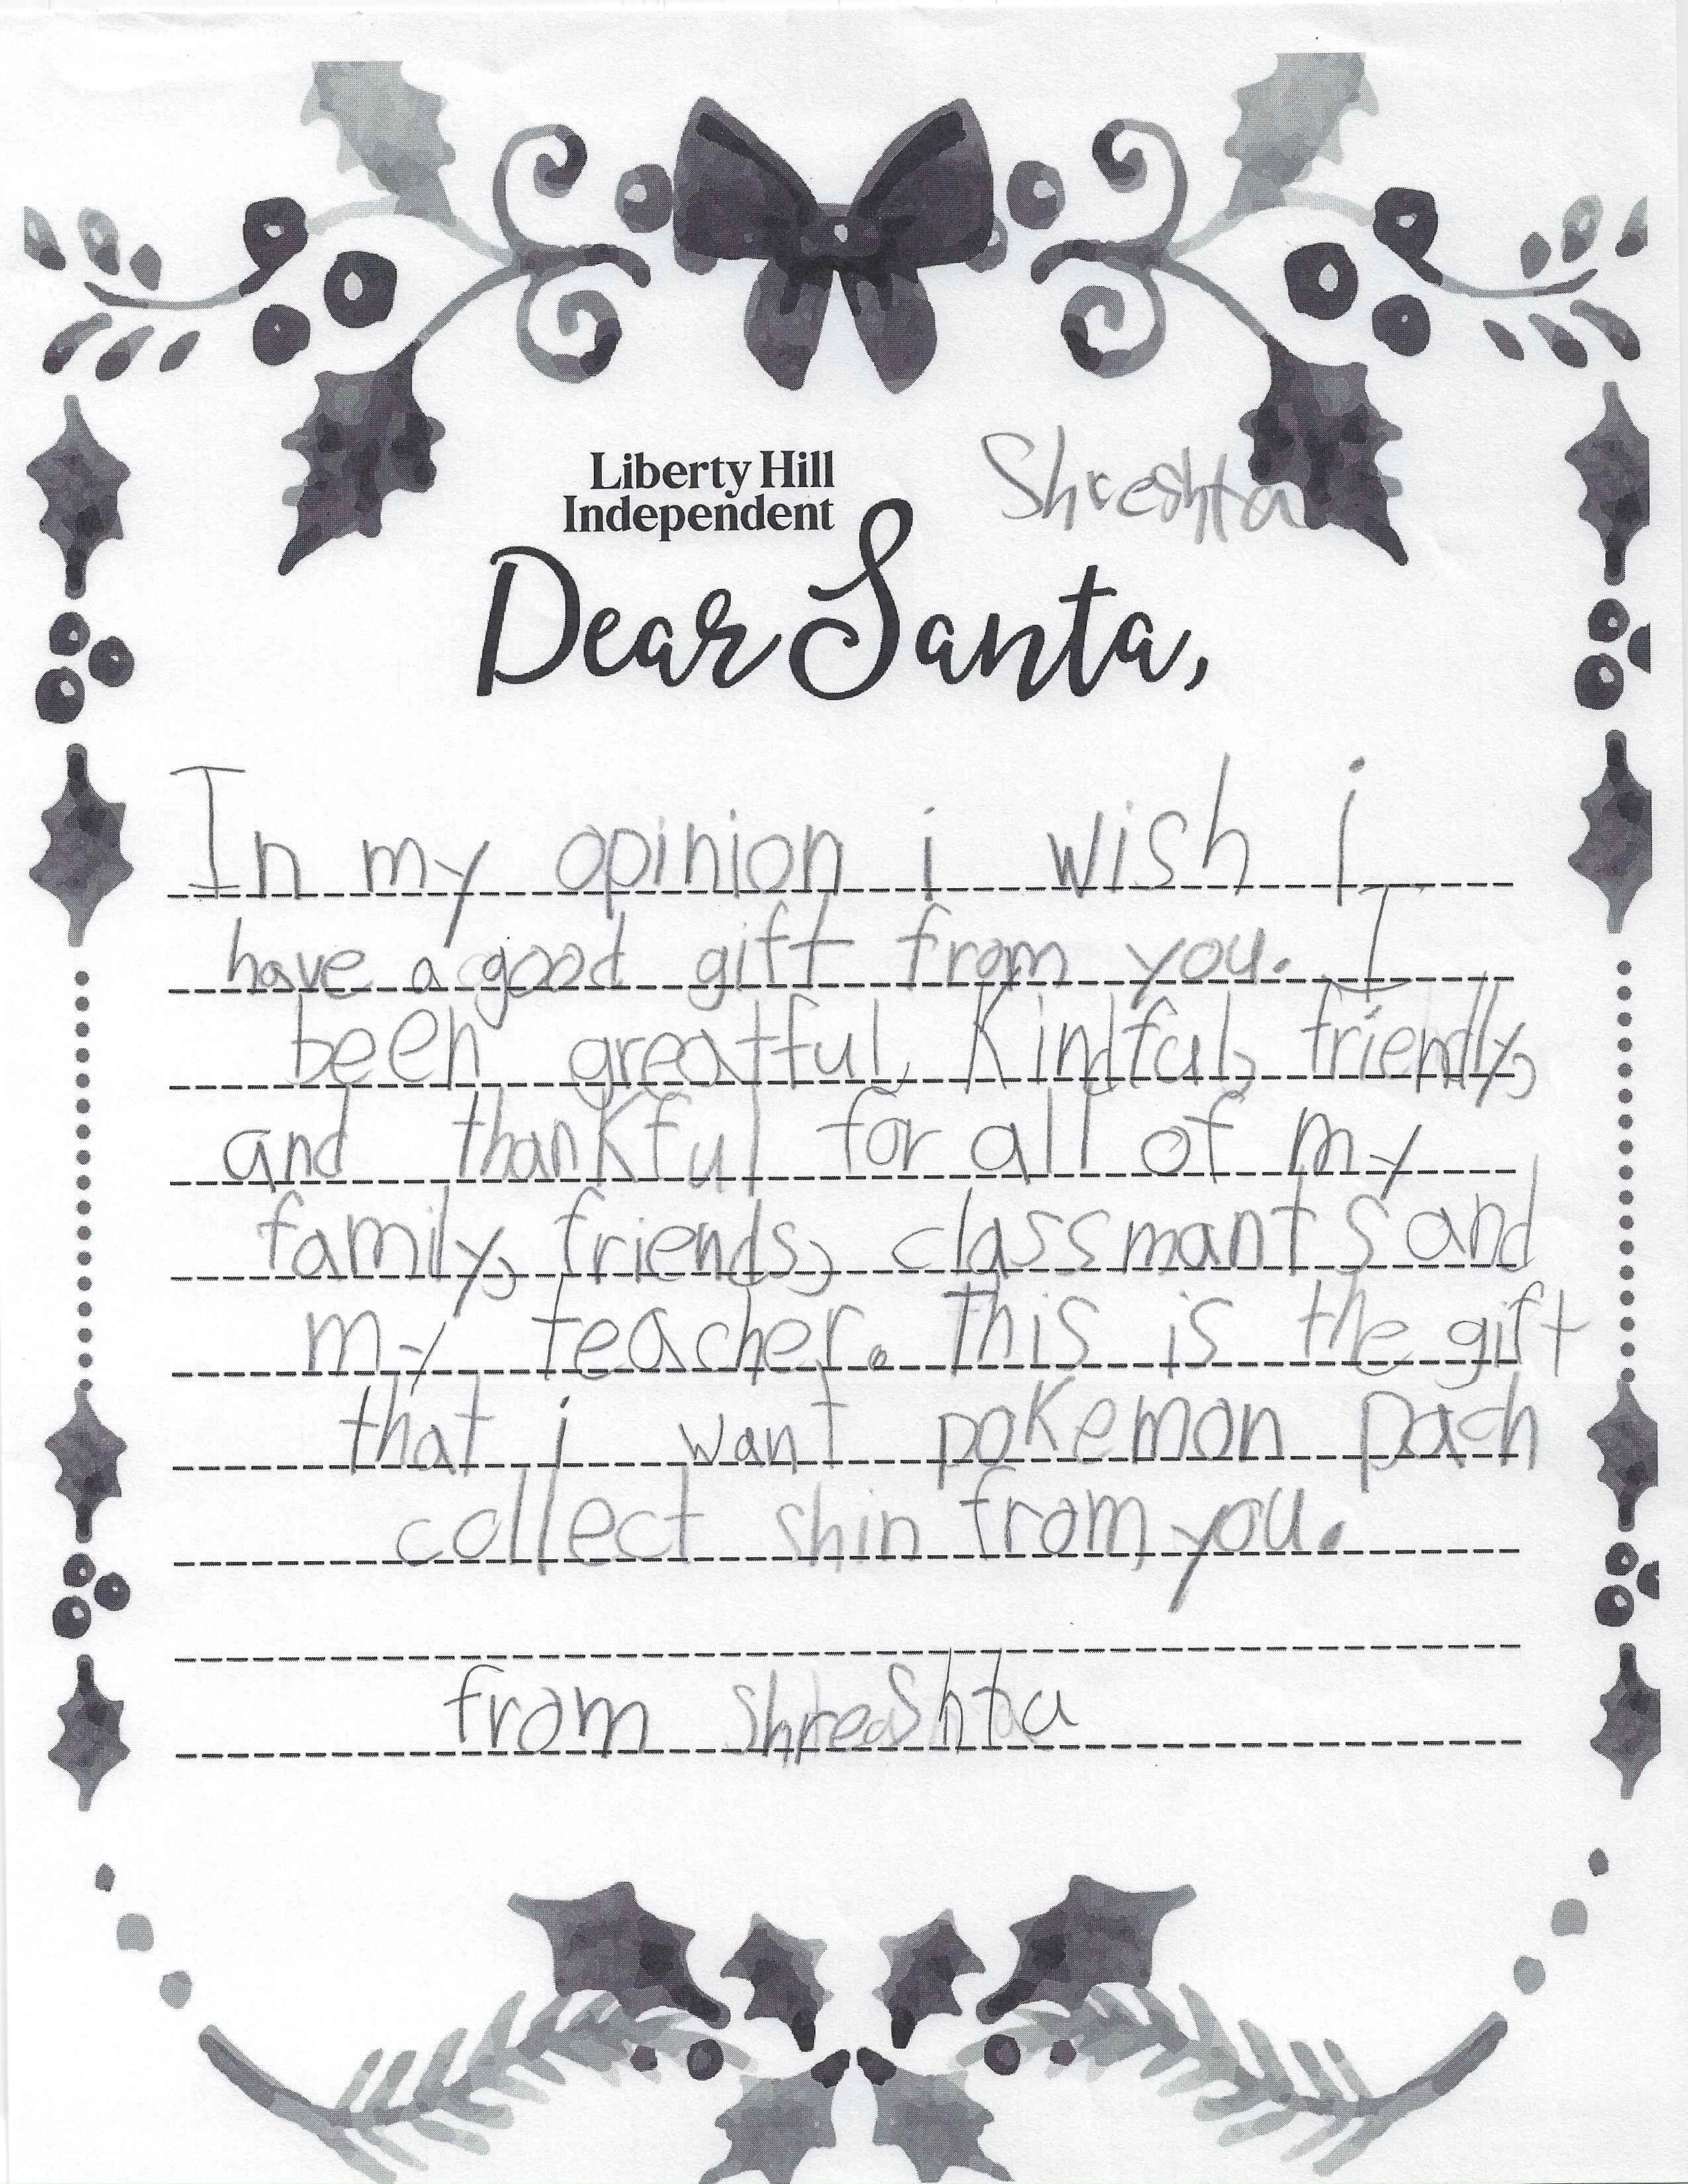 Liberty Hill
Independent
Shreshta
Dear Santa,
In my opinion i wish i
have a good gift from you. I
been greatful, Kindful, friendly,
and thankful for all of my
family, friends, classmants and
my teacher. This is the gift
that i want pokemon pach
collect shin from you.
from Shreshta